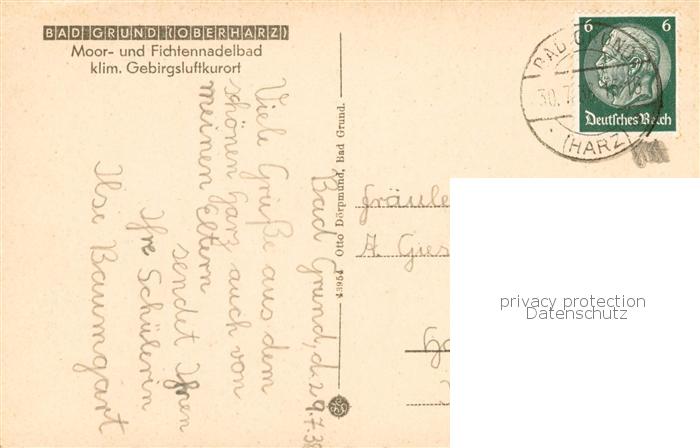 BAD GRUND (OBERHARZ)
Moor- und Fichtennadelbad
klim. Gebirgsluftkurort
Bad Grund, d. 29.7.38
Viele Grüße aus dem
schönen Harz auch von
meinen Eltern
sendet Ihnen
Ihre Schülerin
Ilse Baumgart
43954 Otto Dörpmund, Bad Grund.
6 6
Deutsches Reich
BAD GRUND
30.7.
(HARZ)
Fräulei
A. Gies
privacy protection
Datenschutz